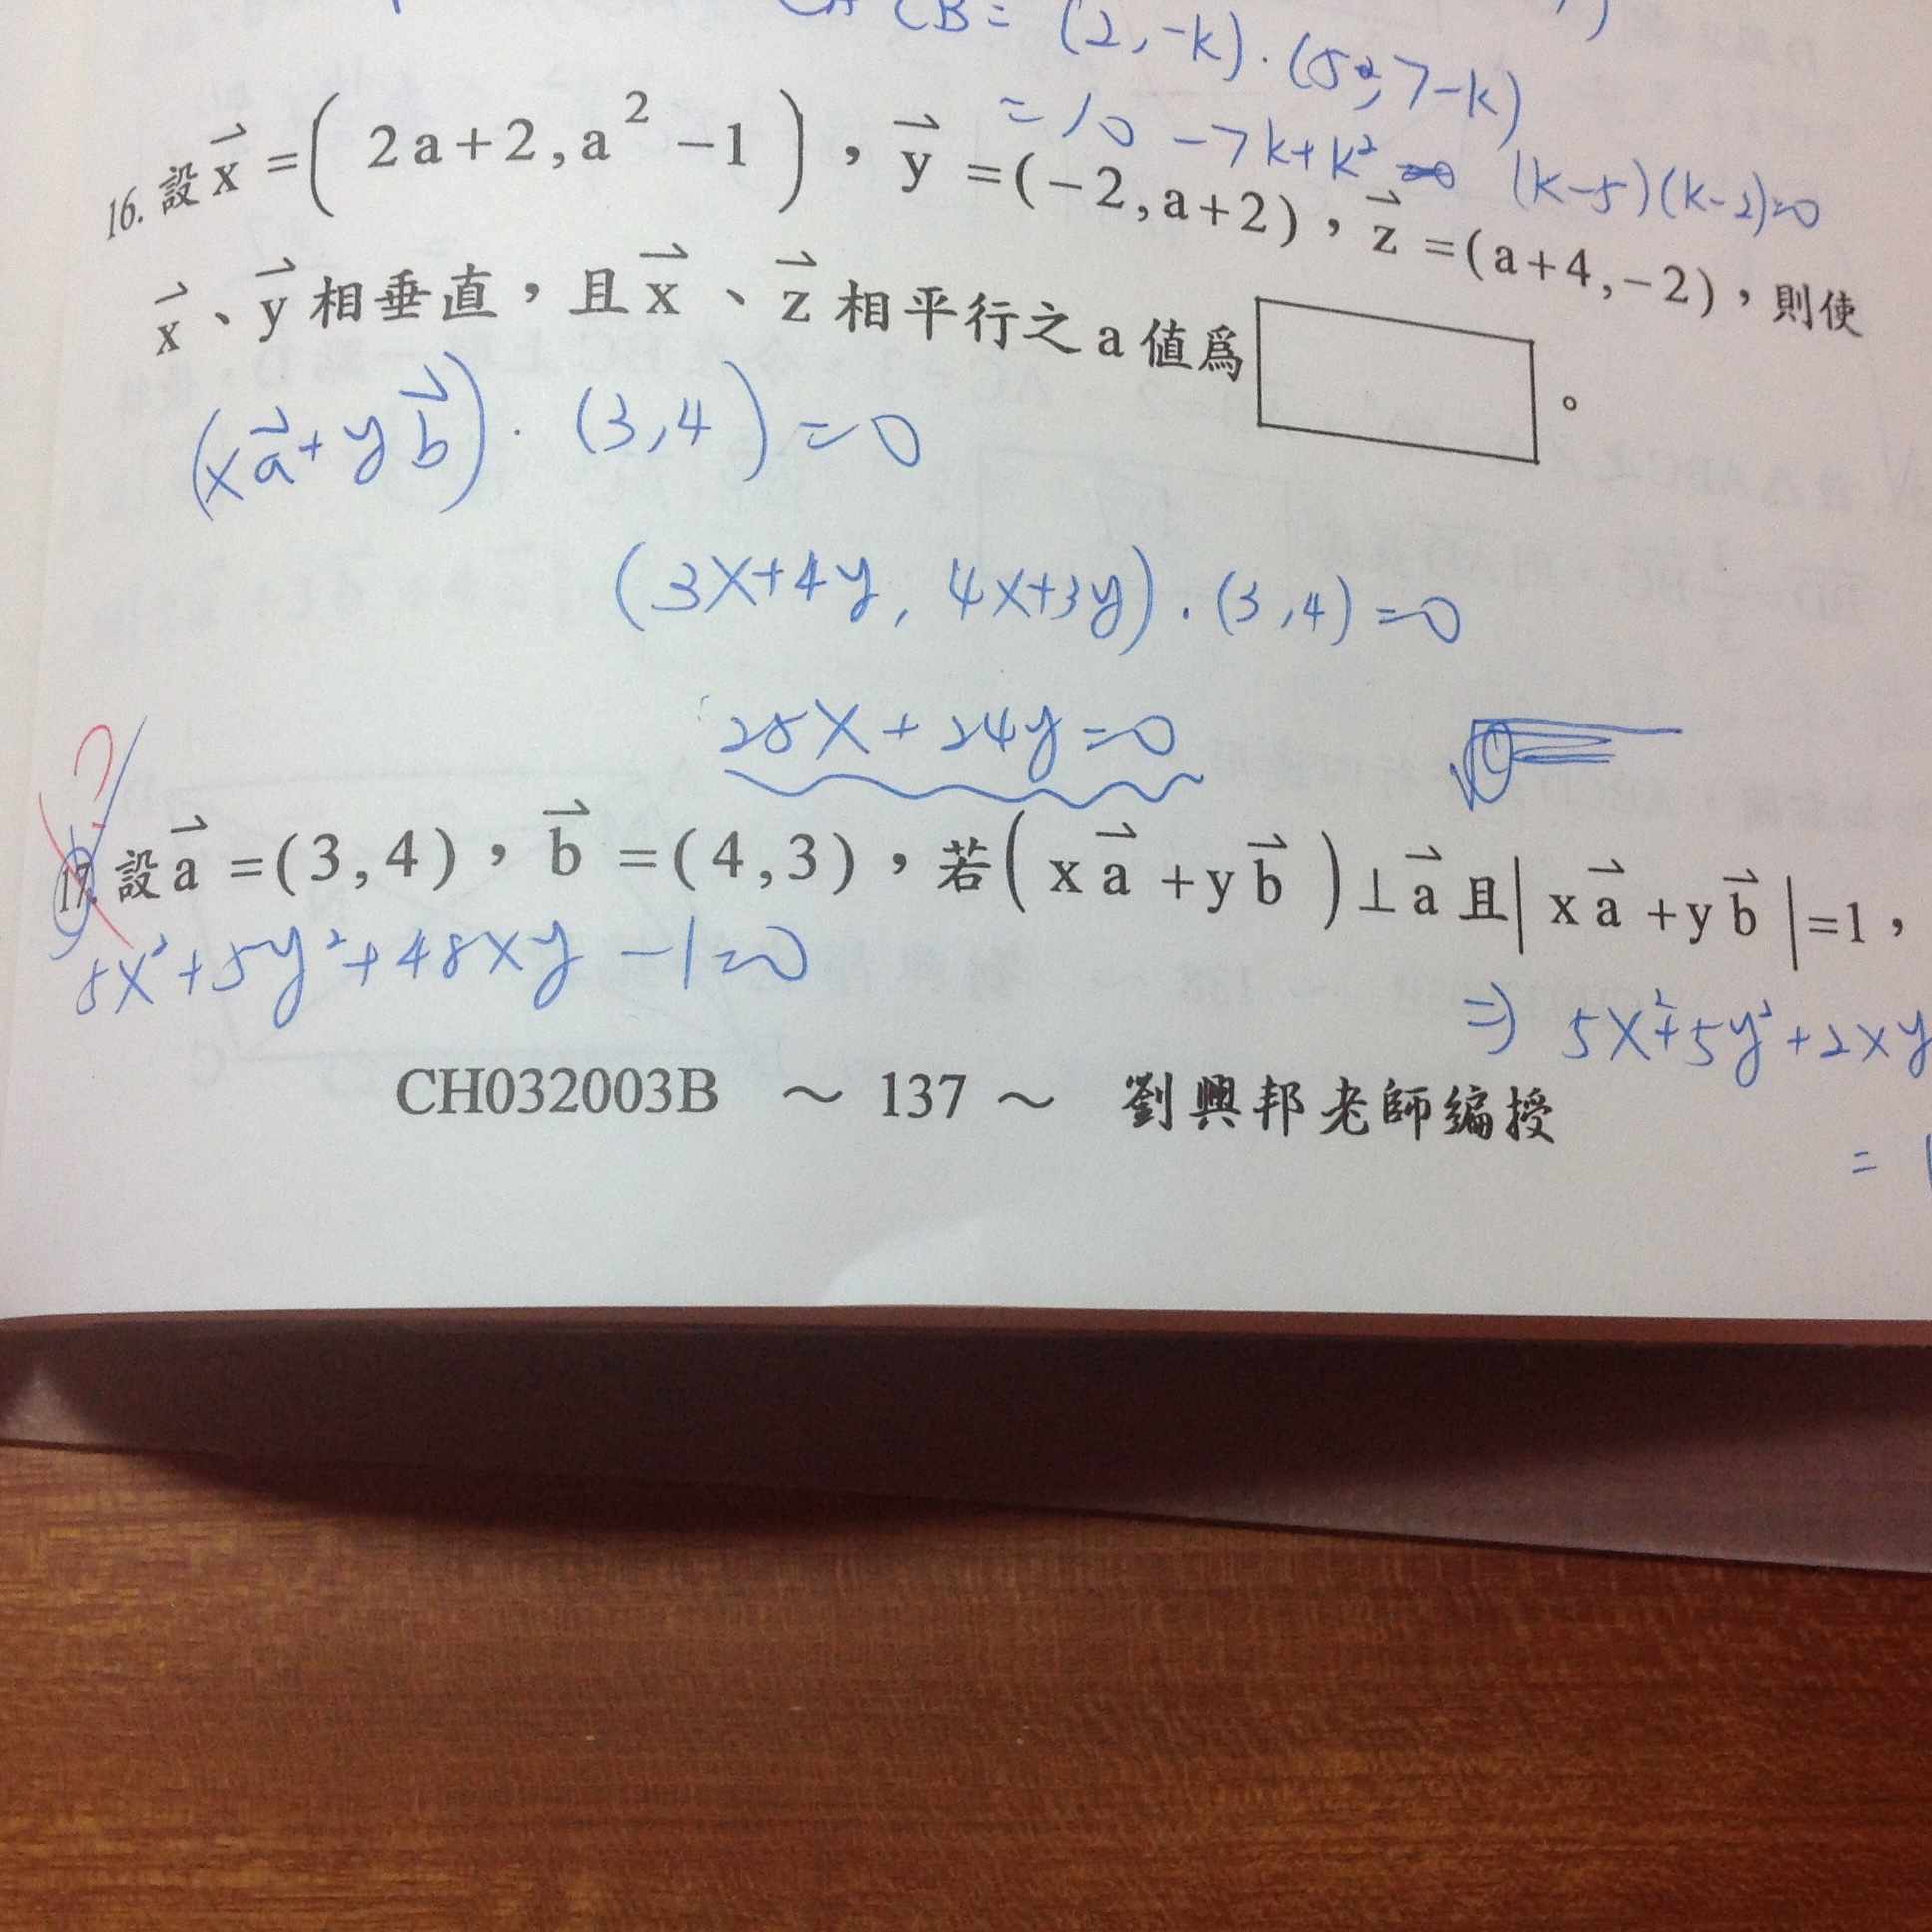 CB = (2,-k)·(5,7-k)
=10-7k+k² (k-5)(k-2)=0
16. 設x⃗=(2a+2,a²-1),y⃗=(-2,a+2),z⃗=(a+4,-2),則使
x⃗、y⃗相垂直,且x⃗、z⃗相平行之a値爲 。
(xa⃗+yb⃗)·(3,4)=0
(3x+4y, 4x+3y)·(3,4)=0
25x+24y=0
17. 設a⃗=(3,4),b⃗=(4,3),若(xa⃗+yb⃗)⊥a⃗且|xa⃗+yb⃗|=1,
5x²+5y²+48xy-1=0
⇒ 5x²+5y²+2xy
CH032003B ~ 137 ~ 劉興邦老師編授
=